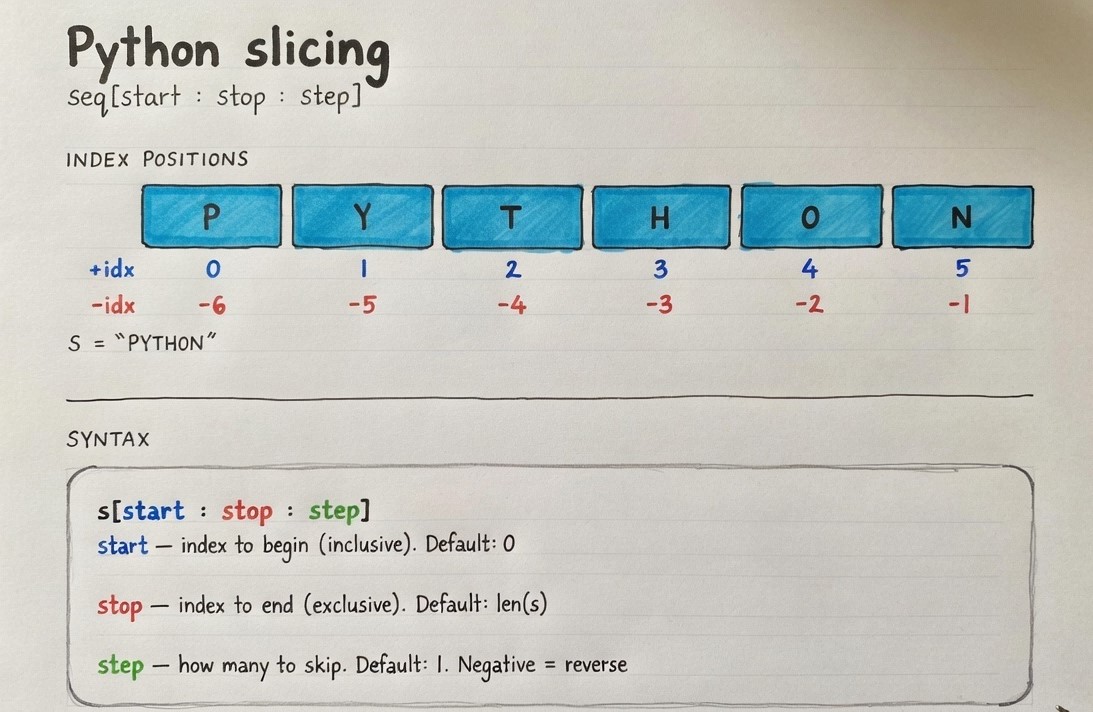 Python slicing
seq[start : stop : step]
INDEX POSITIONS
P Y T H O N
+idx 0 1 2 3 4 5
-idx -6 -5 -4 -3 -2 -1
S = "PYTHON"
SYNTAX
s[start : stop : step]
start — index to begin (inclusive). Default: 0
stop — index to end (exclusive). Default: len(s)
step — how many to skip. Default: 1. Negative = reverse